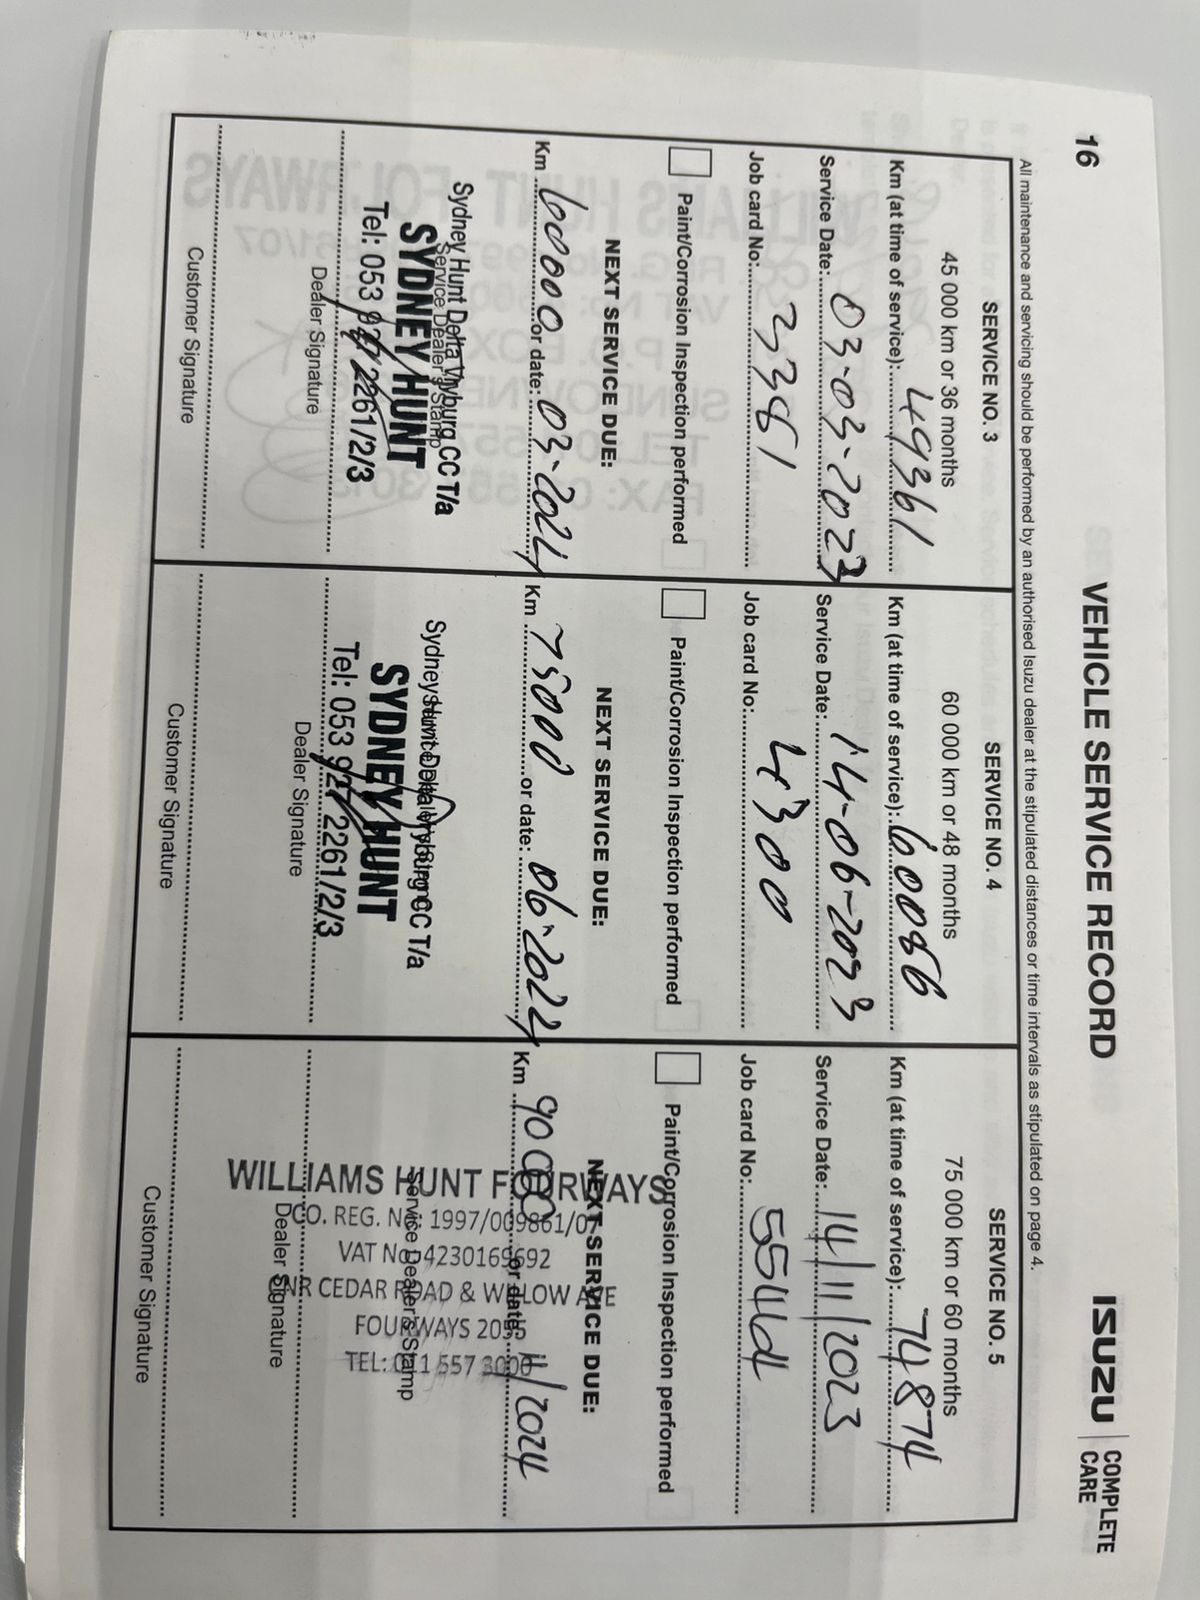 16
VEHICLE SERVICE RECORD
ISUZU COMPLETE CARE
All maintenance and servicing should be performed by an authorised Isuzu dealer at the stipulated distances or time intervals as stipulated on page 4.
SERVICE NO. 3
45 000 km or 36 months
Km (at time of service): 49361
Service Date: 03-03-2023
Job card No: 3381
Paint/Corrosion Inspection performed
NEXT SERVICE DUE:
Km 60000 or date: 03-2024
Sydney Hunt Delta Vryburg CC T/a
Service Dealer's Stamp
SYDNEY HUNT
Tel: 053 927 2261/2/3
Dealer Signature
Customer Signature
SERVICE NO. 4
60 000 km or 48 months
Km (at time of service): 60086
Service Date: 14-06-2023
Job card No: 4300
Paint/Corrosion Inspection performed
NEXT SERVICE DUE:
Km 75000 or date: 06-2024
Sydney Hunt Delta Vryburg CC T/a
Service Dealer's Stamp
SYDNEY HUNT
Tel: 053 927 2261/2/3
Dealer Signature
Customer Signature
SERVICE NO. 5
75 000 km or 60 months
Km (at time of service): 74874
Service Date: 14/11/2023
Job card No: 5544
Paint/Corrosion Inspection performed
NEXT SERVICE DUE:
Km 90 000 or date: 11/2024
Service Dealer's Stamp
WILLIAMS HUNT FOURWAYS
CO. REG. No: 1997/009861/07
VAT No: 4230169692
CNR CEDAR ROAD & WILLOW AVE
FOURWAYS 2055
TEL: 011 557 3000
Dealer Signature
Customer Signature